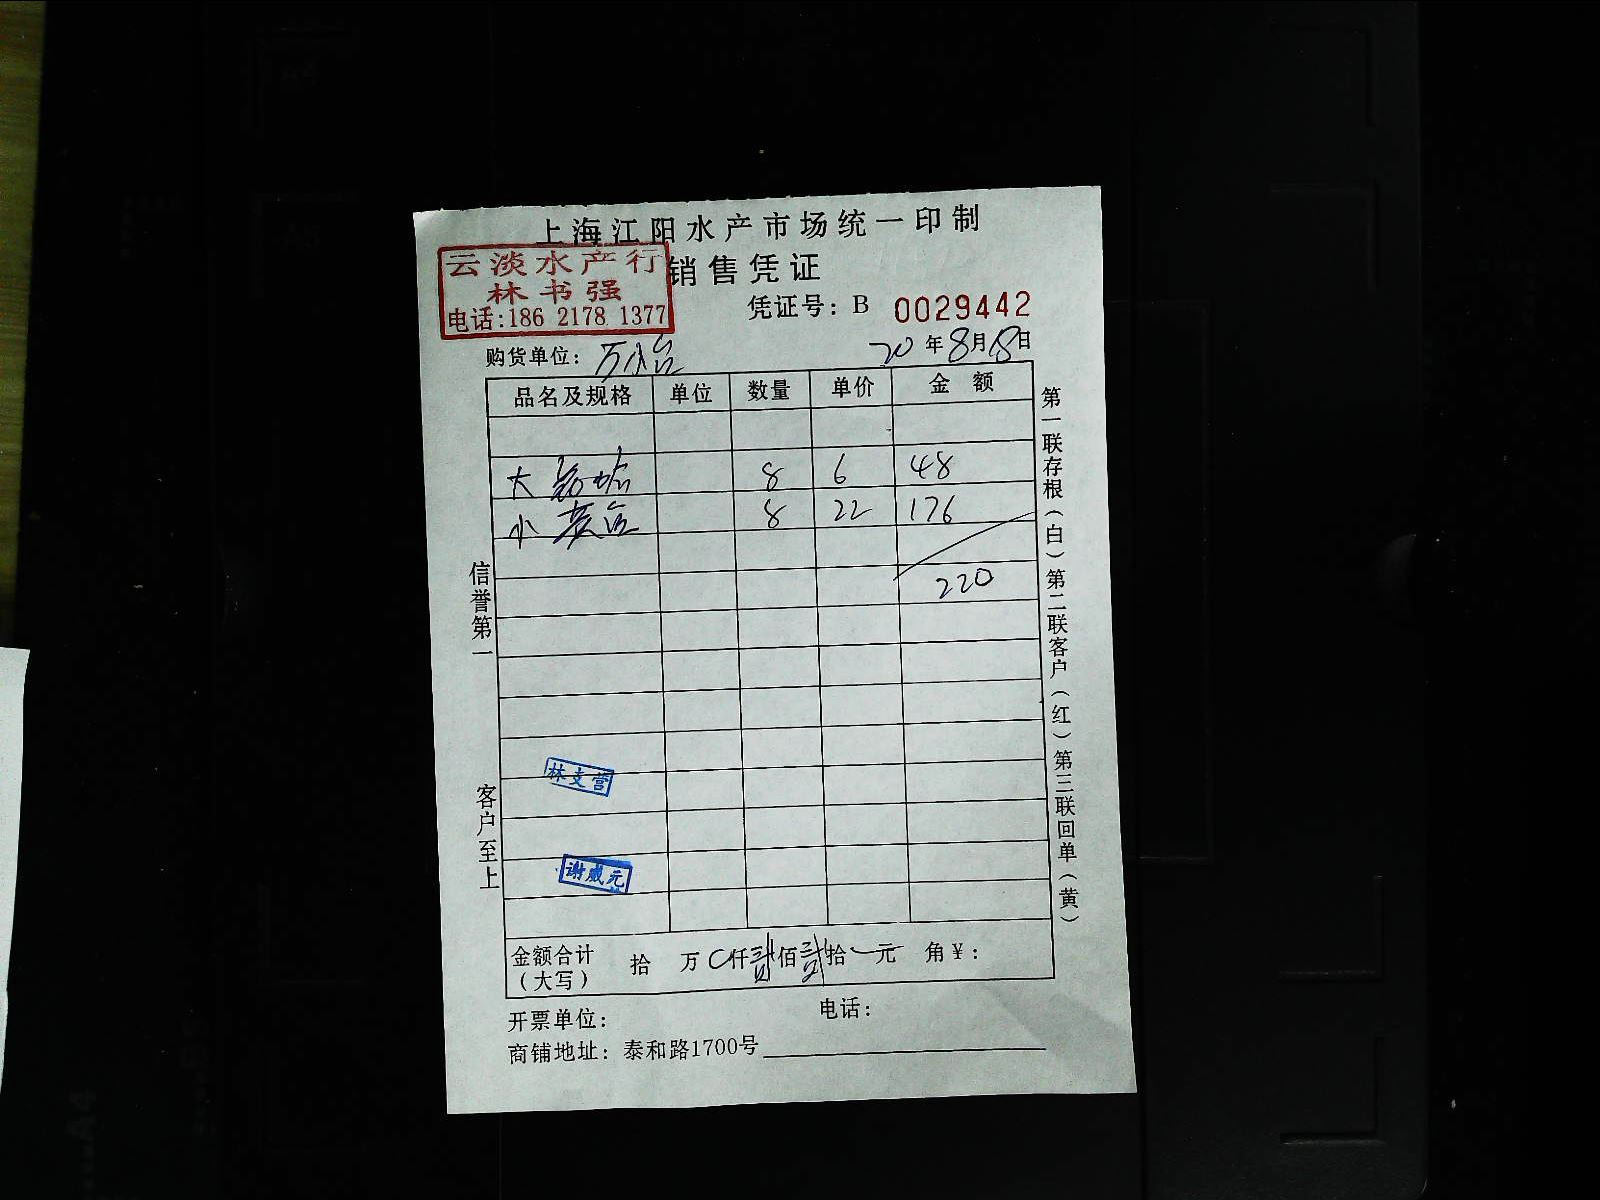 上海江阳水产市场统一印制
云淡水产行
林书强
电话:186 2178 1377
销售凭证
凭证号: B 0029442
购货单位: 万
20年8月18日
品名及规格 单位 数量 单价 金 额
大 8 6 48
小黄鱼 8 22 176
220
信誉第一
客户至上
第一联存根(白)第二联客户(红)第三联回单(黄)
林支营
谢威元
金额合计 拾 万 仟贰佰贰拾 元 角¥:
(大写)
开票单位: 电话:
商铺地址: 泰和路1700号